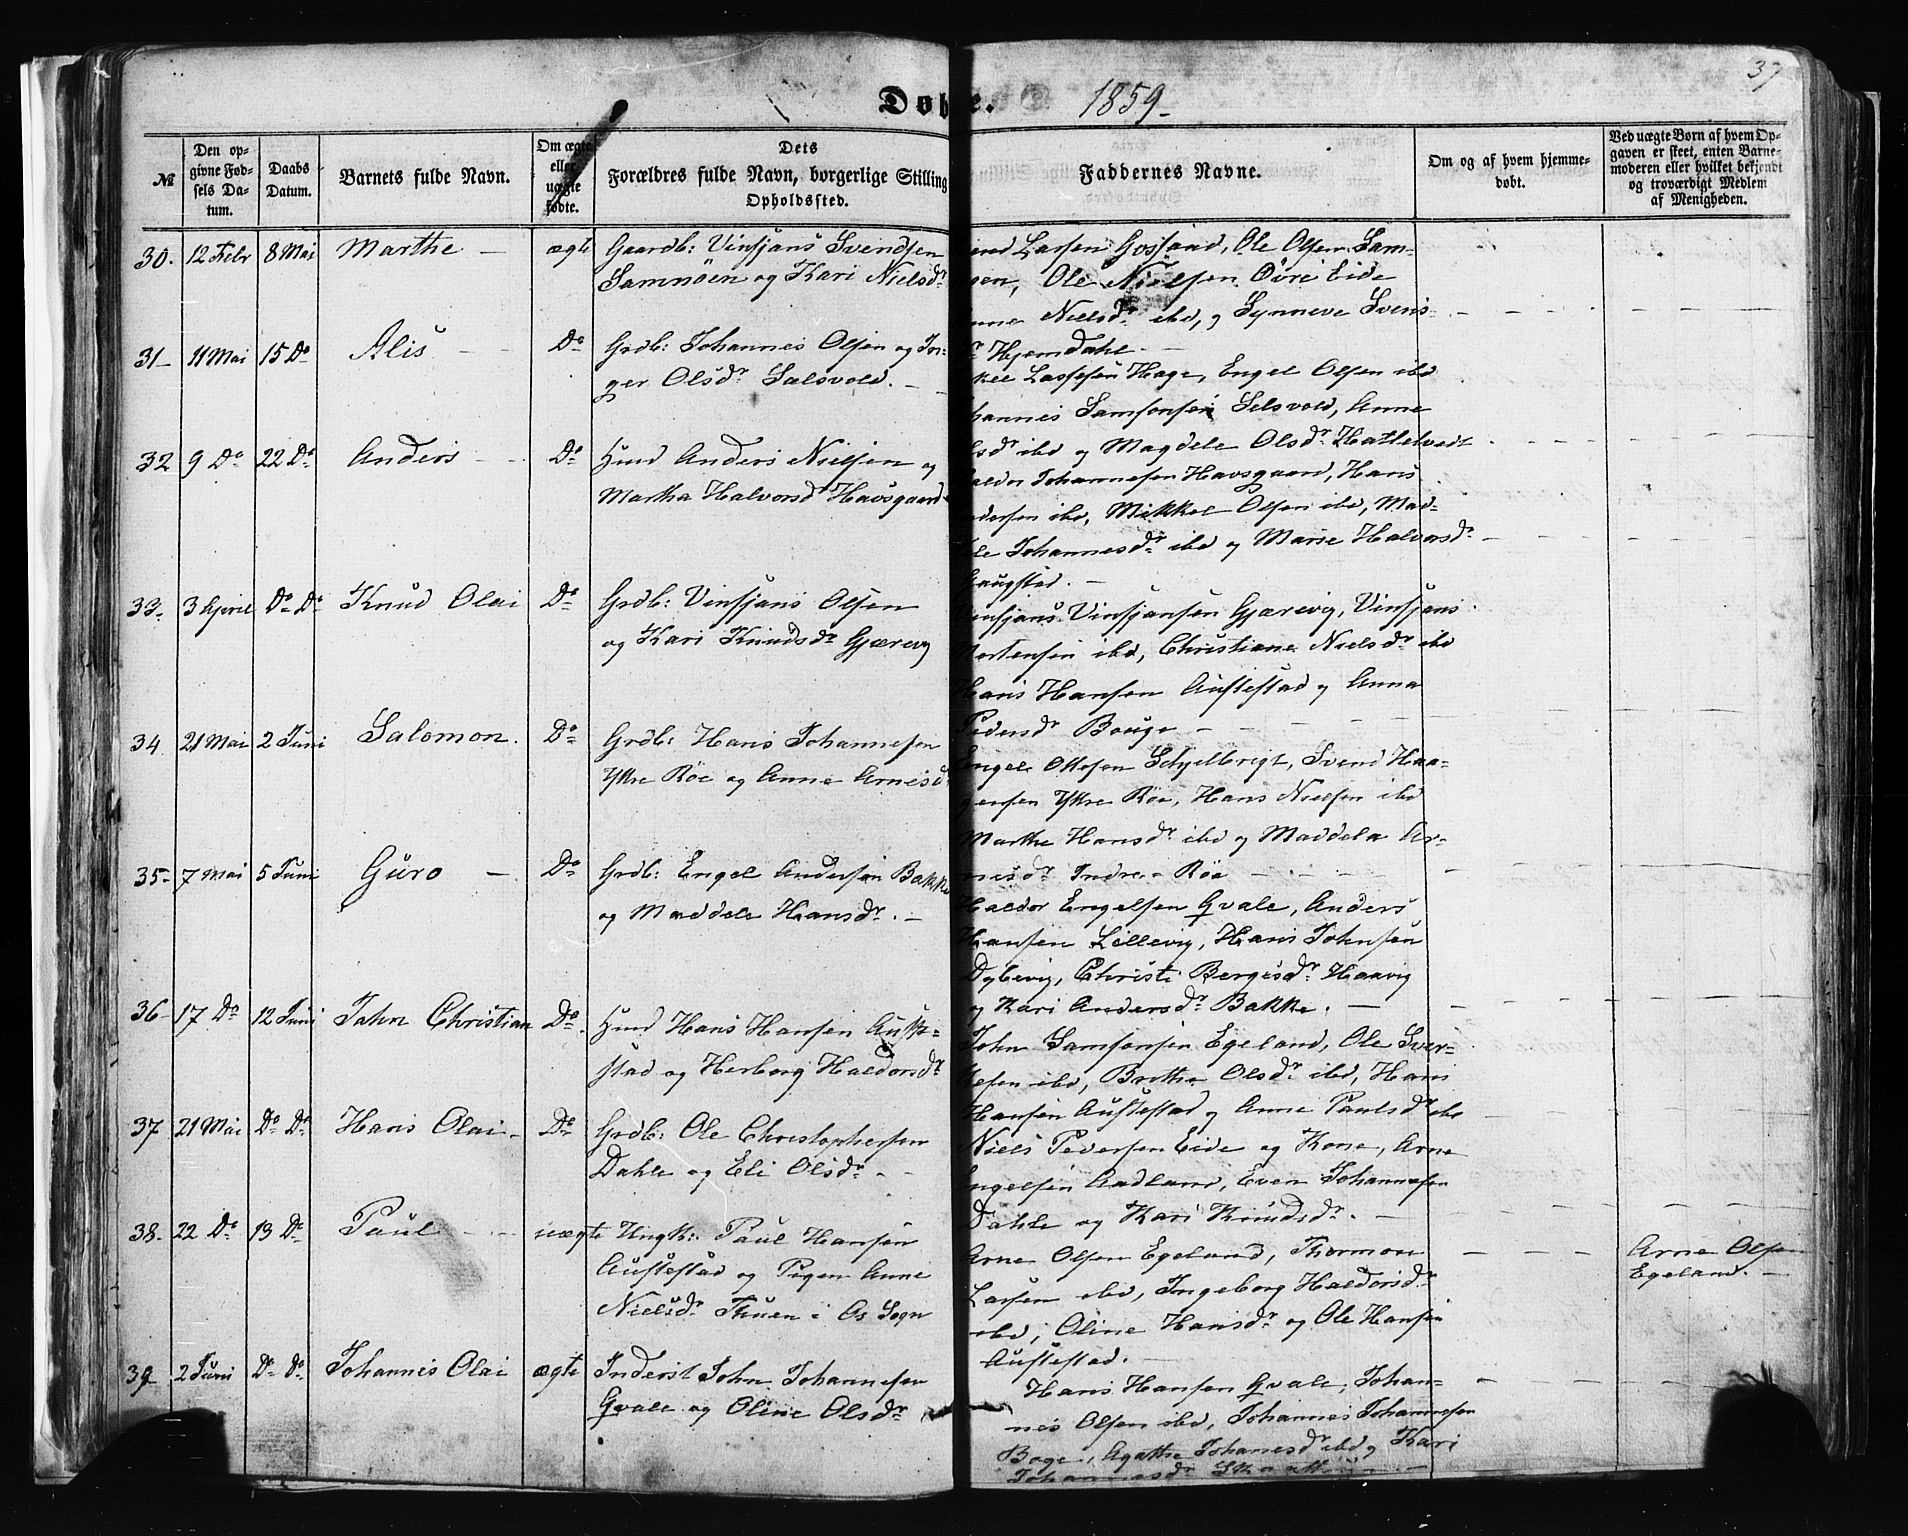 37
Døbte. 1859
№
Den opgivne Fødsels Datum.
Daabs Datum.
Barnets fulde Navn.
Om ægte eller uægte fødte.
Dets
Forældres fulde Navn, borgerlige Stilling
Opholdssted.
Faddernes Navne.
Om og af hvem hjemmedøbt.
Ved uægte Børn af hvem Opgaven er skeet, enten Barnemoderen eller hvilket bekjendt og troværdigt Medlem af Menigheden.
30. 12 Febr 8 Mai Marthe ægte Gaardb: Vinsjans Svendsen
Samnøen og Kari Nielsdr
Larsen Gossand, Ole Olsen Sam-
Ole Nielsen Övre Eide
Nielsdr ibd, og Synneve Svens-
Hjemdahl
31 11 Mai 15 Do Alis Do Grdb: Johannes Olsen og In-
ger Olsdr Salsvold.
Lassesen Hage, Engel Olsen ibd
Samsonsen Selsvold, Anne
ibd og Magdele Olsdr Hattelvedt
32 9 Do 22 Do Anders Do Huusd Anders Nielsen og
Martha Halvorsdr Havsgaard
Johannesen Havsgaard, Hans
ibd, Mikkel Olsen ibd, Mad-
Johannesdr ibd og Marie Halvorsdr
Haugstad.
33. 3 April Do Do Knud Olai Do Grdb: Vinsjans Olsen
og Kari Knudsdr Gjærevig
Vinsjans Vinsjansen Gjærevig, Vinsjans
Mortensen ibd, Christiane Nielsdr ibd
Hans Hansen Austestad og Anna
Pedersdr Bouge
34 21 Mai 2 Juni Salomon. Do Grdb: Hans Johannesen
Ytre Röe og Anne Arnesd
Engel Ottesen Schjelbrigt, Svend Haa-
gensen Ytre Röe, Hans Nielsen ibd
Marthe Hansdr ibd og Maddela Ar-
nesdr Indre Röe
35 7 Mai 5 Juni Guro Do Grdb: Engel Andersen Bakke
og Maddele Hansdr.
Haldor Engelsen Qvale, Anders
Hansen Lillevig, Hans Johnsen
Dybevig, Christi Bergesdr Haavig
og Kari Andersdr Bakke.
36 17 Do 12 Juni John Christian Do Huusd Hans Hansen Auste-
stad og Herborg Haldorsdr
John Samsonsen Egeland, Ole Sver-
kesen ibd, Brithe Olsdr ibd, Hans
Hansen Austestad og Anne Paulsdr ibd
37 21 Mai Do Do Hans Olai Do Grdb: Ole Christophersen
Dahle og Eli Olsdr
Niels Pedersen Eide og Kone, Arne
Engelsen Aadland, Even Johannesen
Dahle og Kari Knudsdr.
38 22 Do 13 Do Paul uægte Ungk: Paul Hansen
Austestad og Pigen Anne
Nielsdr Thuen i Os Sogn
Arne Olsen Egeland, Thormon
Larsen ibd, Ingeborg Haldorsdr
ibd, Oline Hansdr og Ole Hansen
Austestad.
Arne Olsen
Egeland.
39 2 Juni Do Do Johannes Olai ægte Inderst John Johannesen
Qvale og Oline Olsdr
Hans Hansen Qvale, Johan-
nes Olsen ibd, Johannes Johannesen
Boge, Agathe Johanesdr ibd og Kari
Johannesdr